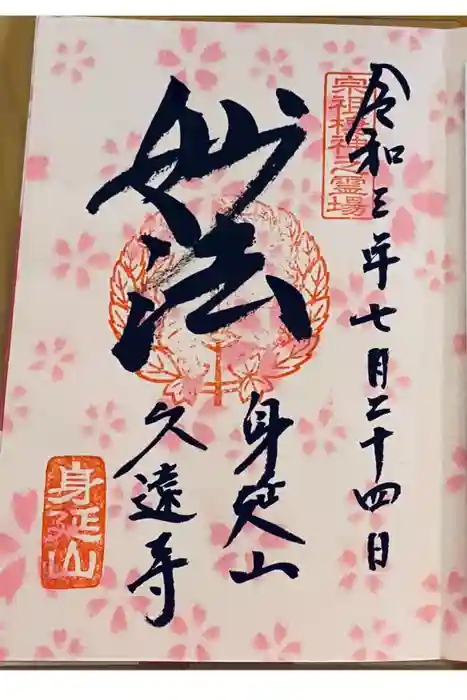 宗祖棲神之霊場
令和三年七月二十四日
妙法
身延山
久遠寺
身延山